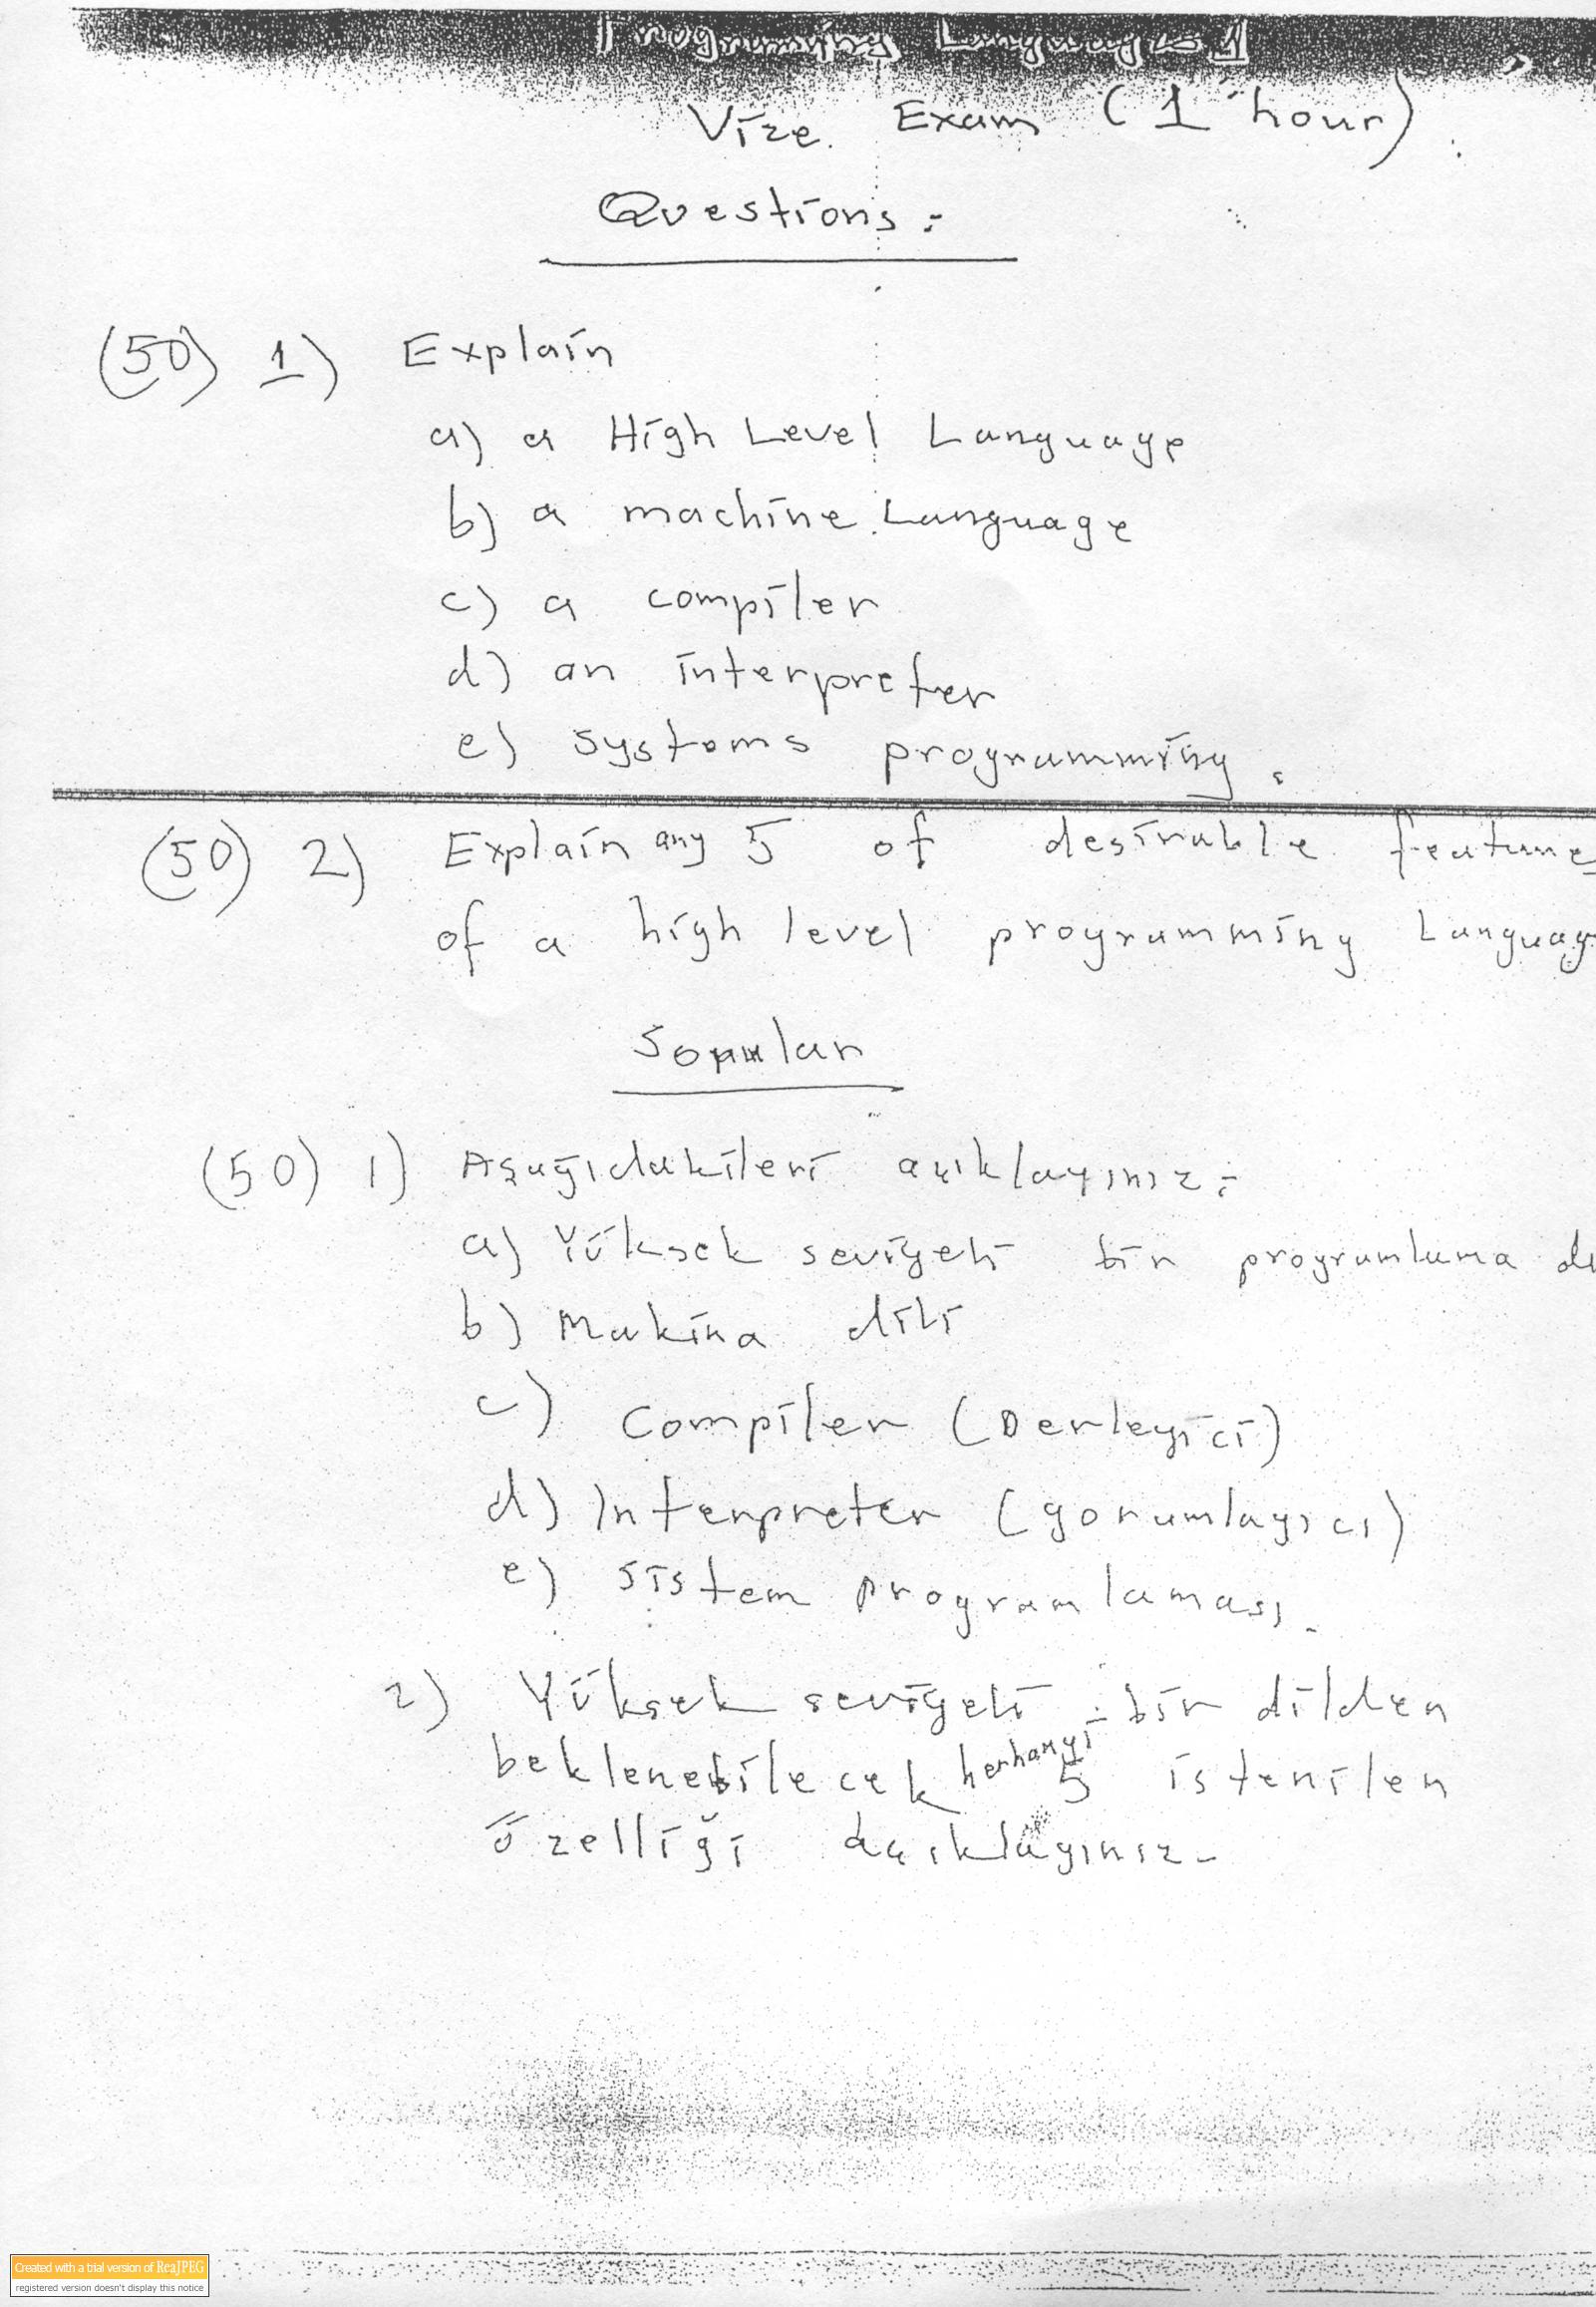 Programming Languages 1
Vize Exam (1 hour)
Questions:
(50) 1) Explain
a) a High Level Language
b) a machine Language
c) a compiler
d) an interpreter
e) systems programming.
(50) 2) Explain any 5 of desirable feature
of a high level programming Languag
Sorular
(50) 1) Aşağıdakileri açıklayınız:
a) Yüksek seviyeli bir programlama di
b) Makina dili
c) Compiler (Derleyici)
d) Interpreter (yorumlayıcı)
e) Sistem programlaması.
2) Yüksek seviyeli bir dilden
beklenebilecek herhangi 5 istenilen
özelliği açıklayınız.
Created with a trial version of ReaJPEG
registered version doesn't display this notice